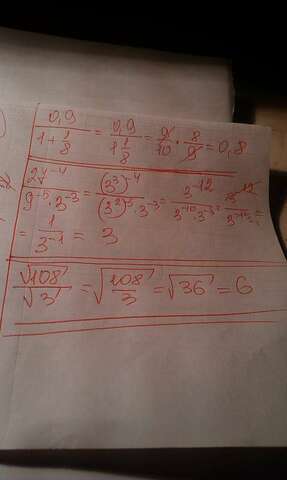 0,9/(1+1/8) = 0,9/(1 1/8) = 9/10 · 8/9 = 0,8
27^-4/(9^-5 · 3^-3) = (3^3)^-4/((3^2)^-5 · 3^-3) = 3^-12/(3^-10 · 3^-3) = 3^-12/3^-13 =
= 1/3^-1 = 3
√108/√3 = √(108/3) = √36 = 6